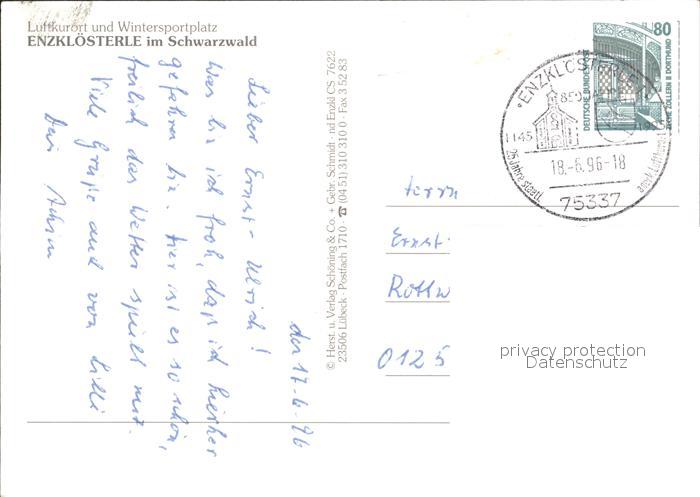 Luftkurort und Wintersportplatz
ENZKLÖSTERLE im Schwarzwald
den 17.6.96
Lieber Ernst-Ulrich!
Was bin ich froh, daß ich hierher
gefahren bin. Hier ist es so schön,
freilich das Wetter spielt mit.
Viele Grüße auch von Lilli
Dein Achim
© Herst. u. Verlag Schöning & Co. + Gebr. Schmidt · nd Enzkl CS 7622
23506 Lübeck · Postfach 1710 · ☎ (04 51) 310 310 0 · Fax 3 52 83
80
DEUTSCHE BUNDESPOST
ZECHE ZOLLERN II DORTMUND
ENZKLÖSTERLE
850
1145
25 Jahre staatl.
18.-6.96-18
75337
Herrn
Ernst-
0125
privacy protection
Datenschutz